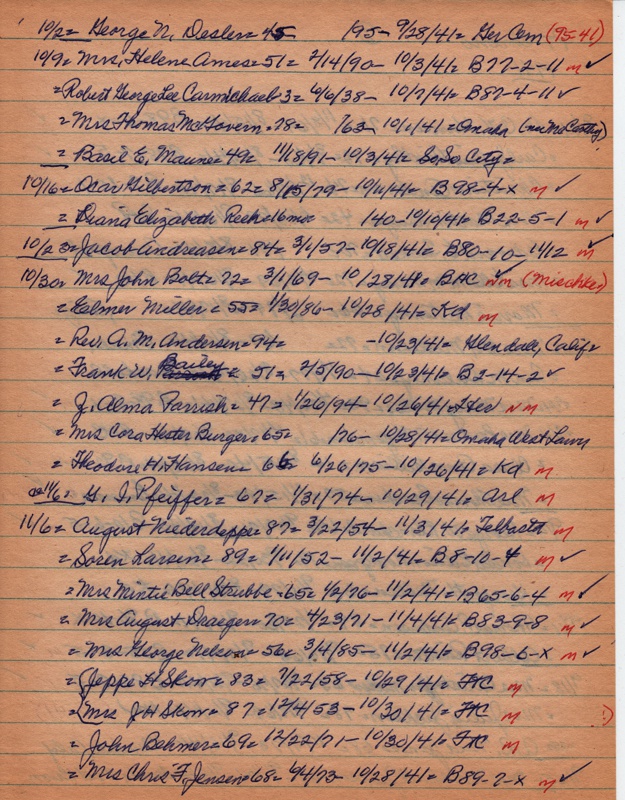 10/2= George N. Desler= 45 /95- 9/28/41= Ger Cem (95-41)
10/9= Mrs. Helene Ames= 51= 2/14/90- 10/3/41= B77-2-11 m ✓
= Robert George Lee Carmichael= 3= 6/6/38- 10/7/41= B87-4-11 ✓
= Mrs Thomas McGovern= 78= /63- 10/1/41= Omaha (nee McCarthy)
= Basil E. Maune= 49= 11/18/91- 10/3/41= So. So City=
10/16= Oscar Gilbertson= 62= 8/15/79- 10/11/41= B98-4-X m ✓
= Diana Elizabeth 16mo= 140-10/10/41= B22-5-1 m ✓
10/23= Jacob Andreasen= 84= 3/1/57- 10/18/41= B80-10-11/12 m ✓
10/30= Mrs John Bolt= 72= 3/1/69- 10/28/41= BHC m (Mischke)
= Elmer Miller= 55= 1/30/86- 10/28/41= Kd m
= Rev. A. M. Andersen= 94= -10/23/41= Glendall, Calif=
= Frank W. Bailey= 51= 2/5/90- 10/23/41= B2-14-2 ✓
= J. Alma Parrish= 47= 1/26/94- 10/26/41= Her N m
= Mrs Cora Hester Burger= 65= /76- 10/28/41= Omaha West Lawn
= Theodore H. Hansen= 66= 6/26/75- 10/26/41= Kd m
11/6= G. I. Pfeiffer= 67= 1/31/74- 10/29/41= Arl m
11/6= August Niederdeppe= 87= 3/22/54- 11/3/41= Telbasta m
= Soren Larsen= 89= 1/11/52- 11/2/41= B8-10-4 m ✓
= Mrs Mintie Bell Strubbe= 65= 1/2/76- 11/2/41= B65-6-4 m ✓
= Mrs August Draeger= 70= 4/23/71- 11/4/41= B83-9-8 m ✓
= Mrs George Nelson= 56= 3/4/85- 11/2/41= B98-6-X m ✓
= (Jeppe H Skow= 83= 7/22/58- 10/29/41= FHC m
= (Mrs J H Skow= 87= 12/4/53- 10/30/41= FHC m
= John Behmer= 69= 12/22/71- 10/30/41= FHC m
= Mrs Chris F. Jensen= 68= 9/4/73- 10/28/41= B89-7-X m ✓